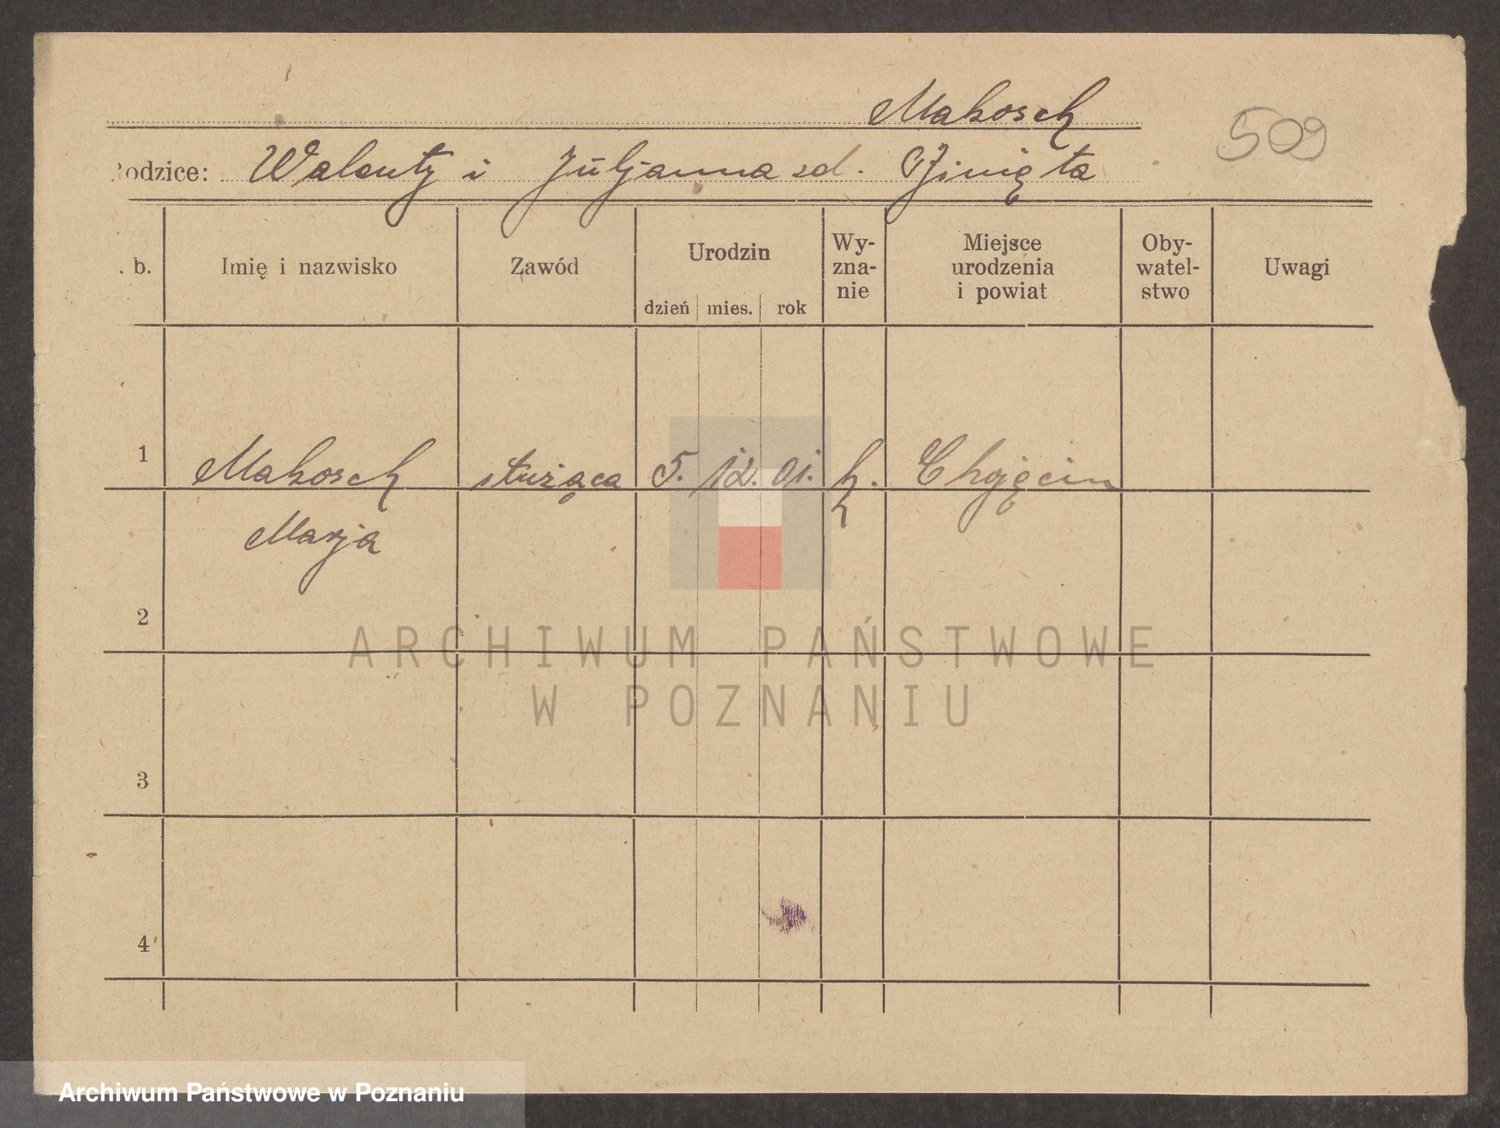 Makosch
509
Rodzice: Walenty i Juljanna zd.
L. b. Imię i nazwisko Zawód Urodzin dzień mies. rok Wy-zna-nie Miejsce urodzenia i powiat Oby-watel-stwo Uwagi
1 Makosch służąca 5. 12. 01. k. Chojęcin
Marja
2
3
4
ARCHIWUM PAŃSTWOWE
W POZNANIU
Archiwum Państwowe w Poznaniu